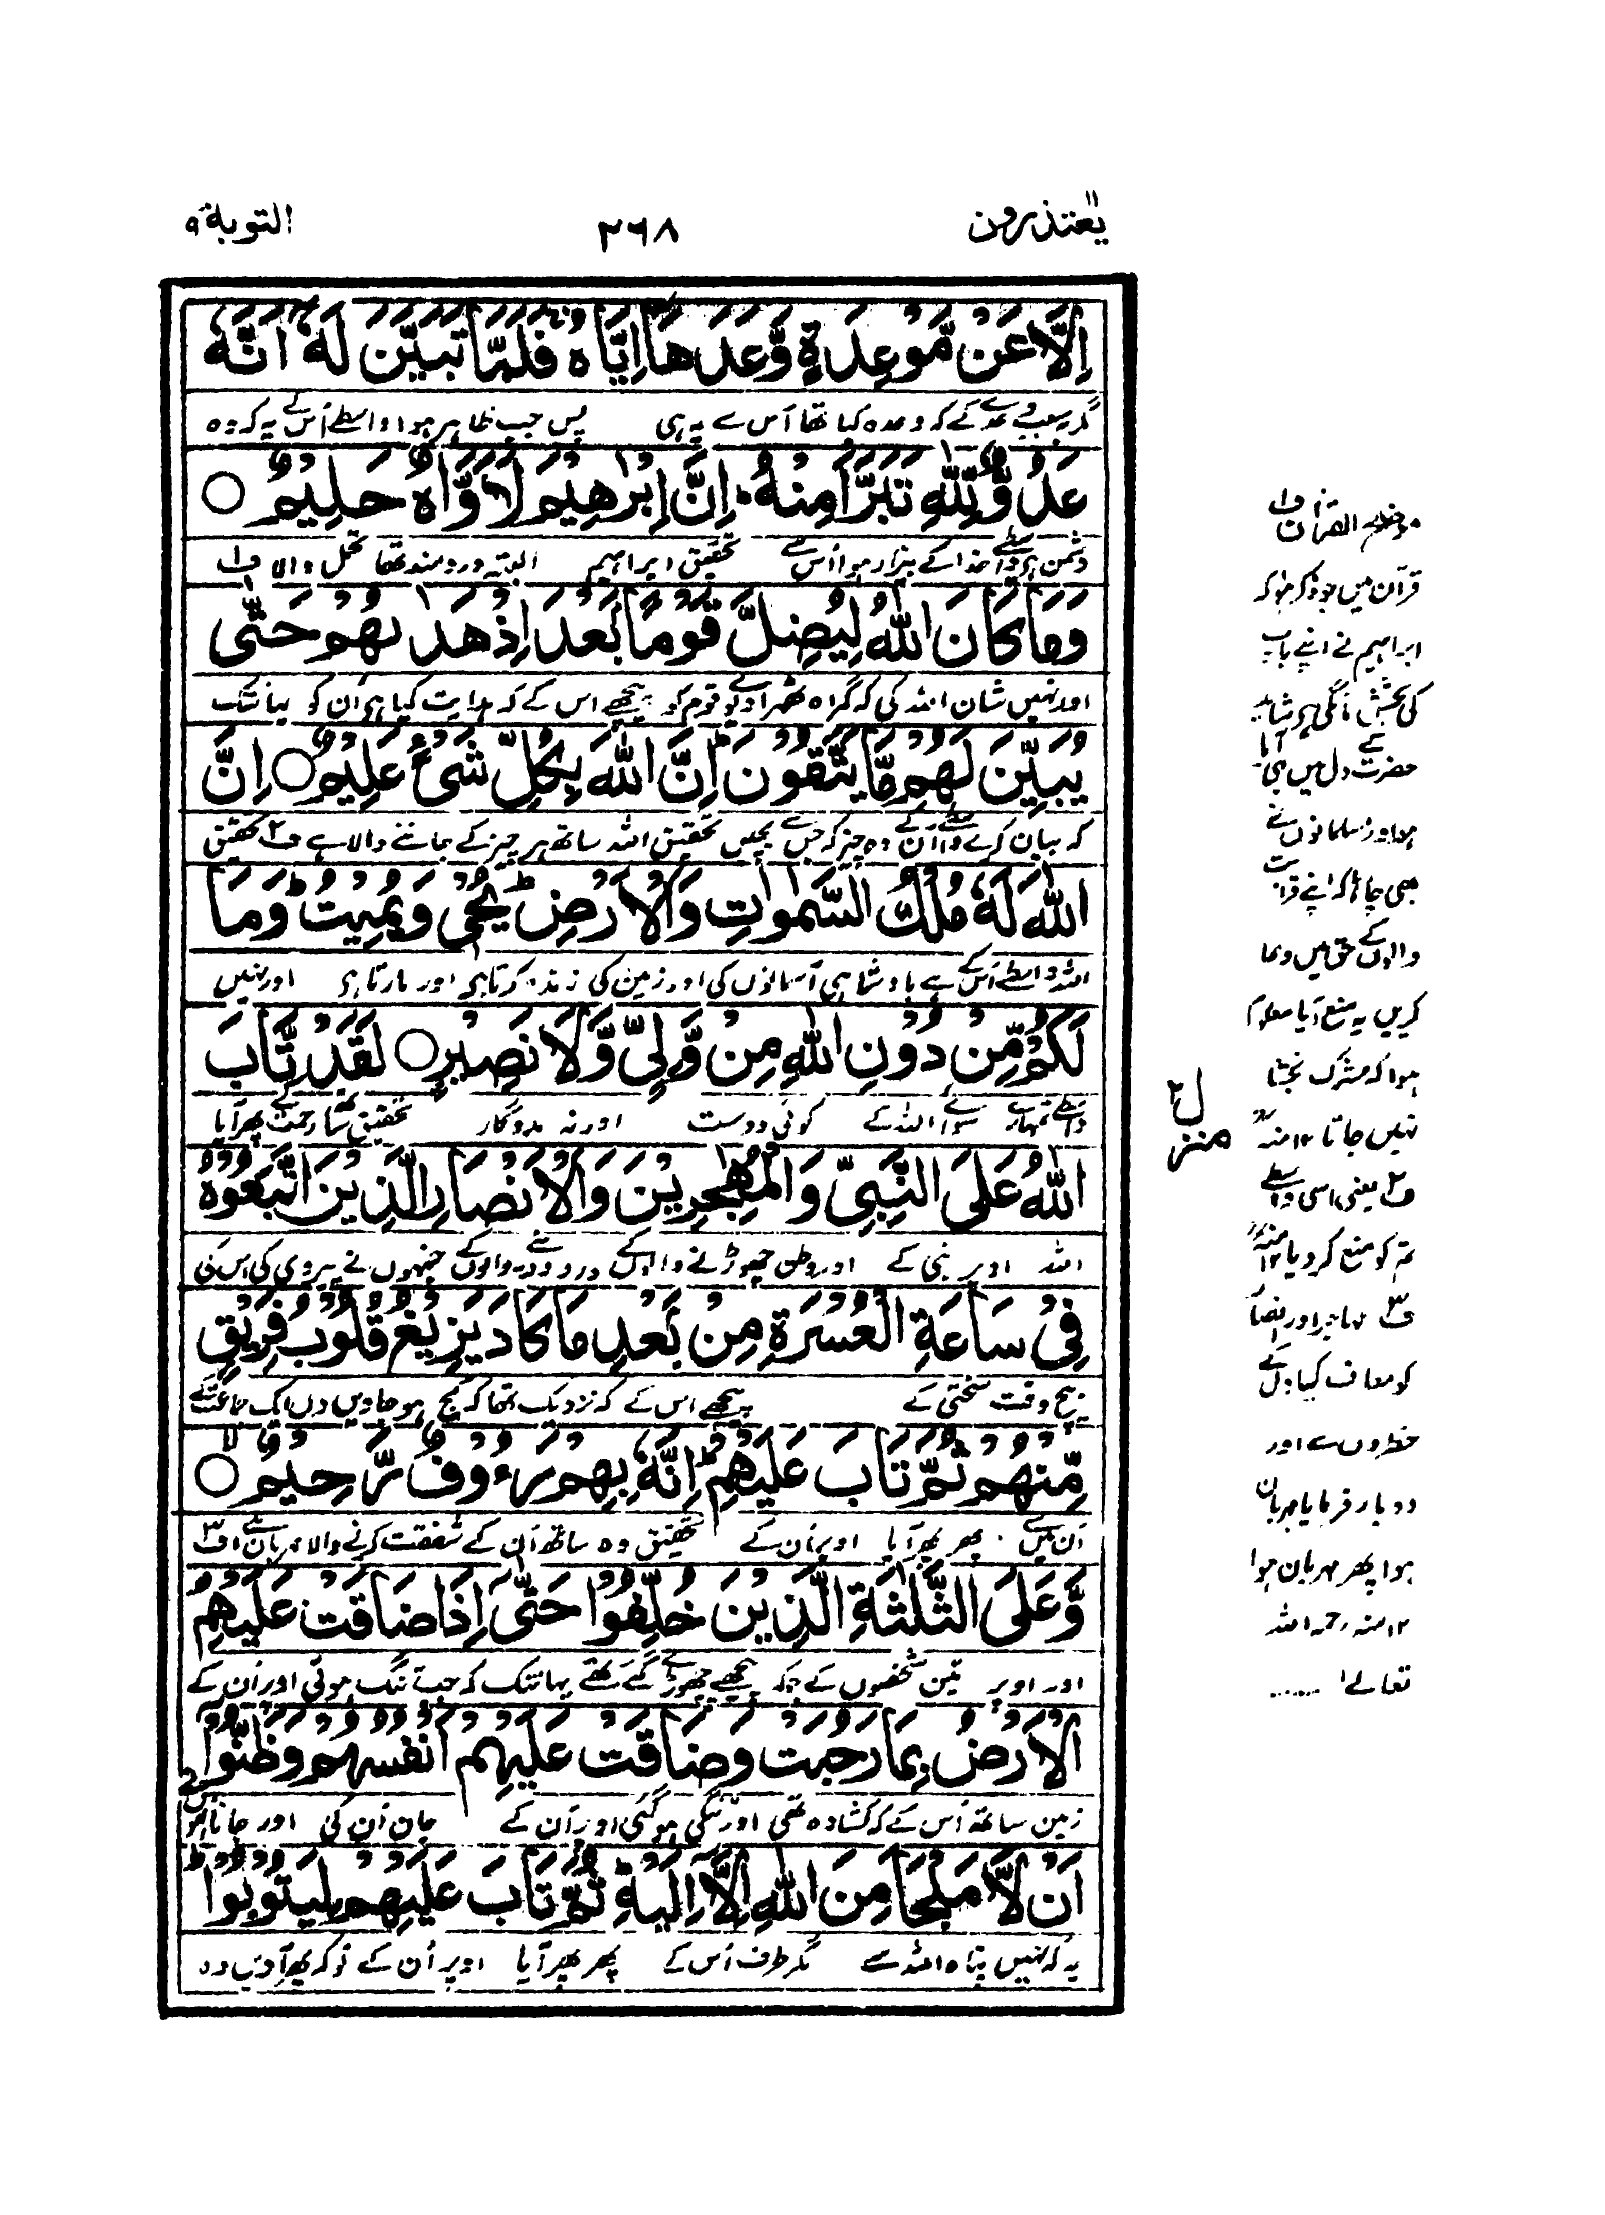 يعتذرون ١١
٢٦٨
التوبة ٩
اِلَّا عَنْ مَّوْعِدَةٍ وَّعَدَهَا اِيَّاهُ فَلَمَّا تَبَيَّنَ لَهٗ اَنَّهٗ
مگر بسبب وعدے کے کہ وعدہ کیا تھا اُس سے یہ ہی پس جب ظاہر ہوا واسطے اُس کے یہ کہ وہ
عَدُوٌّ لِّلّٰهِ تَبَرَّاَ مِنْهُ ؕ اِنَّ اِبْرٰهِيْمَ لَاَوَّاهٌ حَلِيْمٌ ○
دشمن ہی واسطے خدا کے بیزار ہوا اُس سے تحقیق ابراہیم البتہ دردمند تھا تحمل والا ف۱
وَمَا كَانَ اللّٰهُ لِيُضِلَّ قَوْمًا بَعْدَ اِذْ هَدٰىهُمْ حَتّٰى
اور نہیں شان اللہ کی کہ گمراہ ٹھہرا دیوے قوم کو پیچھے اس کے کہ ہدایت کیا ہو اُن کو یہانتک
يُبَيِّنَ لَهُمْ مَّا يَتَّقُوْنَ ؕ اِنَّ اللّٰهَ بِكُلِّ شَيْءٍ عَلِيْمٌ ○ اِنَّ
کہ بیان کرے واسطے اُن کے وہ چیز کہ جس سے بچیں تحقیق اللہ ساتھ ہر چیز کے جاننے والا ہے ف۲ تحقیق
اللّٰهَ لَهٗ مُلْكُ السَّمٰوٰتِ وَالْاَرْضِ ؕ يُحْيٖ وَيُمِيْتُ ؕ وَمَا
اللہ واسطے اُس کے ہے بادشاہی آسمانوں کی اور زمین کی زندہ کرتا ہی اور مارتا ہی اور نہیں
لَكُمْ مِّنْ دُوْنِ اللّٰهِ مِنْ وَّلِيٍّ وَّلَا نَصِيْرٍ ○ لَقَدْ تَّابَ
واسطے تمہارے سوائے اللہ کے کوئی دوست اور نہ مددگار تحقیق ساتھ رحمت کے پھر آیا
اللّٰهُ عَلَى النَّبِيِّ وَالْمُهٰجِرِيْنَ وَالْاَنْصَارِ الَّذِيْنَ اتَّبَعُوْهُ
اللہ اوپر نبی کے اور وطن چھوڑنے والوں کے اور مدد دینے والوں کے جنہوں نے پیروی کی اس کی
فِيْ سَاعَةِ الْعُسْرَةِ مِنْ بَعْدِ مَا كَادَ يَزِيْغُ قُلُوْبُ فَرِيْقٍ
بیچ وقت سختی کے پیچھے اس کے کہ نزدیک تھا کہ کج ہو جاویں دل ایک جماعت کے
مِّنْهُمْ ثُمَّ تَابَ عَلَيْهِمْ ؕ اِنَّهٗ بِهِمْ رَءُوْفٌ رَّحِيْمٌ ○
اُن میں سے پھر پھر آیا اوپر اُن کے تحقیق وہ ساتھ اُن کے شفقت کرنے والا مہربان ہے ف۳
وَّعَلَى الثَّلٰثَةِ الَّذِيْنَ خُلِّفُوْا حَتّٰىٓ اِذَا ضَاقَتْ عَلَيْهِمُ
اور اوپر تین شخصوں کے جو کہ پیچھے چھوڑے گئے تھے یہانتک کہ جب تنگ ہوئی اوپر اُن کے
الْاَرْضُ بِمَا رَحُبَتْ وَضَاقَتْ عَلَيْهِمْ اَنْفُسُهُمْ وَظَنُّوْٓا
زمین ساتھ اُس کے کہ کشادہ تھی اور تنگ ہو گئی اوپر اُن کے جان اُن کی اور جانا انہوں نے
اَنْ لَّا مَلْجَاَ مِنَ اللّٰهِ اِلَّآ اِلَيْهِ ؕ ثُمَّ تَابَ عَلَيْهِمْ لِيَتُوْبُوْا ؕ
یہ کہ نہیں پناہ اللہ سے مگر طرف اُس کے پھر پھر آیا اوپر اُن کے تو کہ پھر آویں وہ
موضح القرآن ف۱
قرآن میں جو ذکر ہوا کہ
ابراہیم نے اپنے باپ
کی بخشش مانگی ہی شاید
حضرت کے دل میں بھی آیا
ہو اور مسلمانوں نے
بھی چاہا کہ اپنے قرابت
والوں کے حق میں دعا
کریں یہ منع آیا معلوم
ہوا کہ مشرک بخشا
نہیں جاتا ۱۲ منہ
ف۲ یعنی اسی واسطے
تم کو منع کر دیا ۱۲ منہ
ف۳ مہاجر اور انصار
کو معاف کیا دل کے
خطروں سے اور
دو بار فرمایا مہربان
ہوا پھر مہربان ہوا
۱۲ منہ رحمہ اللہ
تعالےٰ
منزل ۲